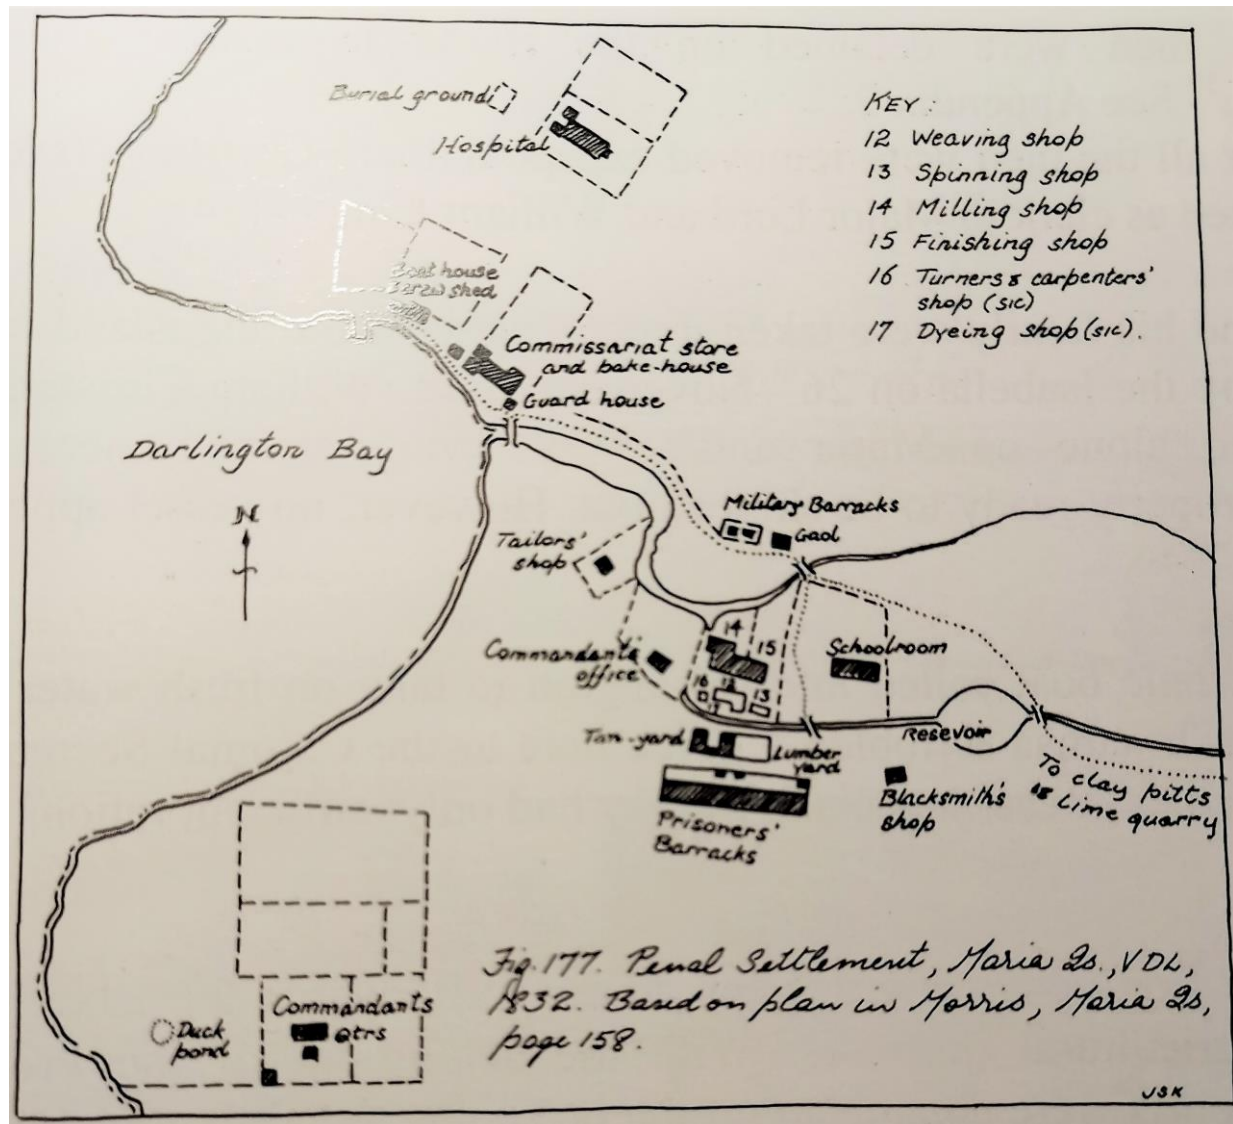 Burial ground
Hospital
KEY:
12 Weaving shop
13 Spinning shop
14 Milling shop
15 Finishing shop
16 Turners & carpenters'
shop (sic)
17 Dyeing shop (sic).
Boat house
shed
Commissariat store
and bake-house
Guard house
Darlington Bay
N
Military Barracks
Gaol
Tailors'
shop
14
15
Schoolroom
Commandant's
office
16
12
13
17
Tan-yard
Lumber
yard
Resevoir
Prisoners'
Barracks
Blacksmith's
shop
To clay pitts
& Lime quarry
Commandants
Qtrs
Duck
pond
Fig. 177. Penal Settlement, Maria Is., VDL,
1832. Based on plan in Morris, Maria Is,
page 158.
JSK